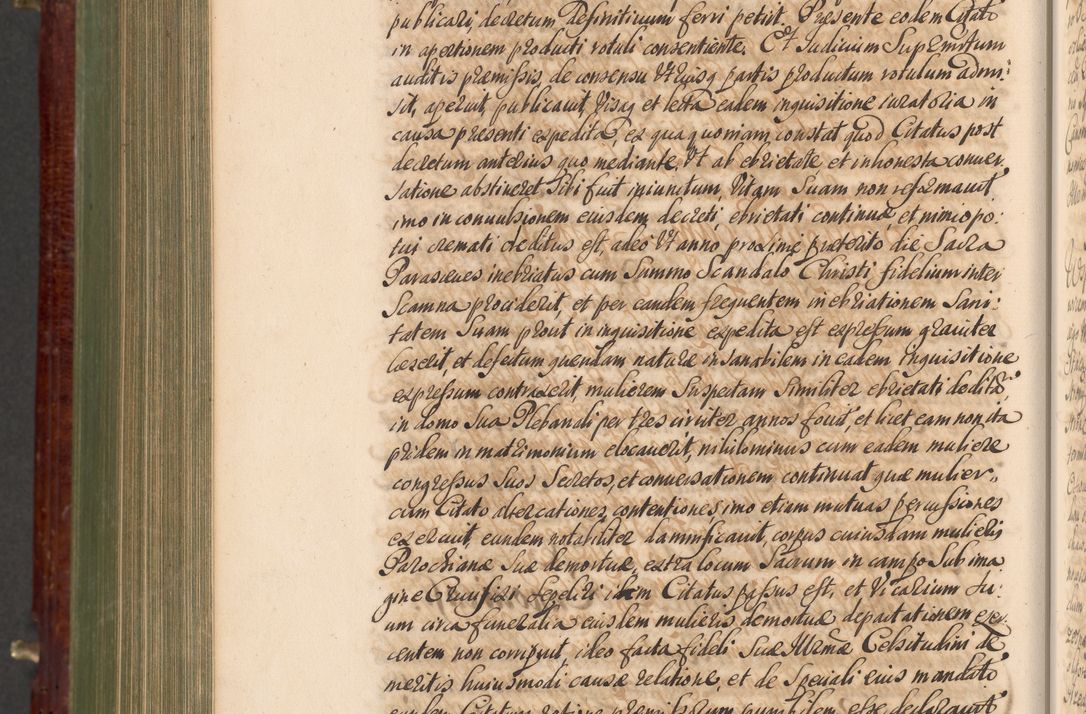 publicari, decretum Definitivum ferri petiit. Presente eodem Citato
in apertionem producti rotuli consentiente. Et Iudicium Supremotum
auditis præmissis, de consensu Utriusq partis productum rotulum admi:
sit, aperuit, publicavit, Visaq et lecta eadem inquisitione iuratoria in
causa præsenti expedita, ex qua quoniam constat quod Citatus post
decretum anterius quo mediante, Ut ab ebrietate et inhonesta conver,
satione abstineret Sibi fuit iniunctum, Vitam Suam non reformavit
imo in convulsionem eiusdem decreti, ebrietati continuæ, et nimio po:
tui cremati deditus est, adeo Ut anno proxime præterito die Sacra
Parasceves inebriatus cum Summo Scandalo Christi fidelium inter
Scamna prociderit, et per eandem frequentem inebriationem Sani:
tatem Suam prout in inquisitione expedita est expressum graviter
læserit, et defectum quendam naturæ insanabilem in eadem inquisitione
expressum contraxerit, mulierem Suspectam Similiter ebrietati deditã
in domo Sua Plebanali per tres circiter annos fovit, et licet eam non ita
pridem in matrimonium elocaverit, nihilominus cum eadem muliere
congressus Suos Secretos, et conversationem continuat quæ mulier,,
cum Citato altercationes, contentiones imo etiam mutuas percussiones
exercuit, eundem notabiliter damnificavit, corpus cuiusdam mulieris
Parochianæ Suæ demortuæ, extra locum Sacrum in campo Sub ima
gine Crucifixi Sepeliri idem Citatus passus est, et Vicarium Su:
um circa funeralia eiusdem mulieris demortuæ depactationem exer
centem non corripuit, ideo facta fideli Suæ Illrmæ Celsitudini de
meritis huiusmodi causæ relatione, et de Speciali eius mandato
eundem Citatum ratione præmissorum esse declaravit